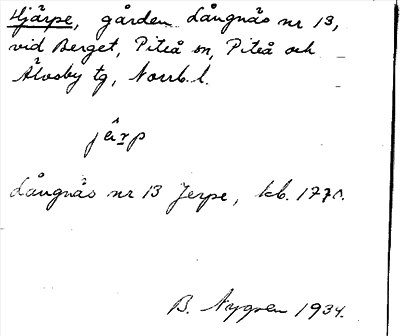 Hjärpe, gården Långnäs nr 13,
vid Berget, Piteå sn, Piteå och
Älvsby tg, Norrb. l.
jêrp
Långnäs nr 13 Jerpe, kb. 1770.
B. Nygren 1934.